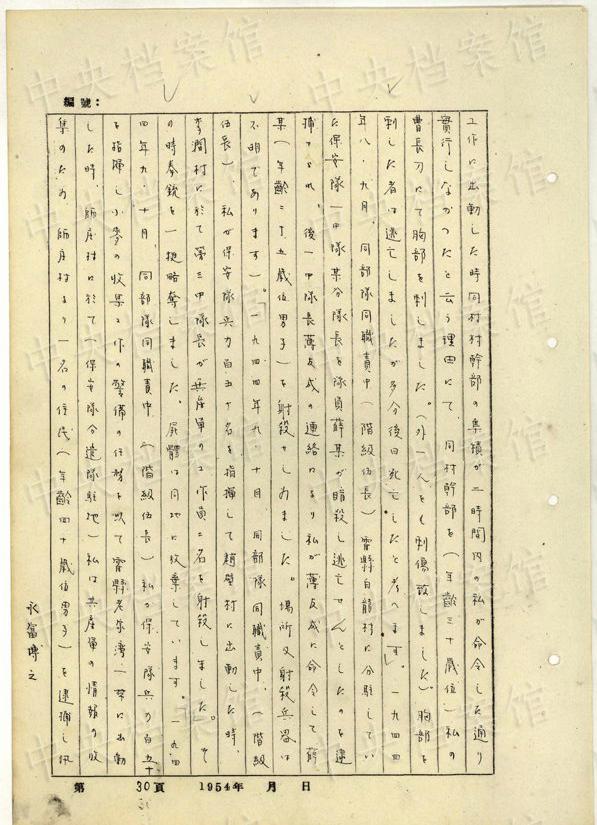 編號：
工作に出動した時同村村幹部の集績が二時間内の私が命令した通り
實行しなかつたと云う理由にて、同村幹部を（年齡三十歲位）私の
曹長刀にて胸部を刺しました。（外一人をも刺傷致しました）胸部を
刺した者は逃亡しましたが多分後日死亡したと考へます。一九四四
年八・九月、同部隊同職責中（階級伍長）霍縣白龍村に分駐してい
た保安隊一中隊某分隊長を隊員薛某が暗殺し逃亡せんとしたのを逮
捕され、後一中隊長薄友成の連絡により私が薄友成に命令して薛
某（年齡二十五歲位男子）を射殺せしめました。場所又射殺兵器は
不明であります）。一九四四年九・十月 同部隊同職責中、（階級
伍長）、私が保安隊兵力百五十名を指揮して趙壁村に出動した時、
李澗村に於て第三中隊長が共產軍の工作員二名を射殺しました。そ
の時拳銃を一挺略奪しました。屍體は同地に放棄しています。一九四
四年九・十月 同部隊同職責中（階級伍長）私が保安隊兵力百五十
を指揮し小麥の收集工作の警備の任務を以て霍縣老張灣一帶に出動
した時、師庄村に於て（保安隊分遣隊駐地）私は共產軍の情報の收
集のため 師庄村より一名の住民（年齡四十歲位男子）を逮捕し訊
永富博之
第 30頁 1954年 月 日
中央档案馆